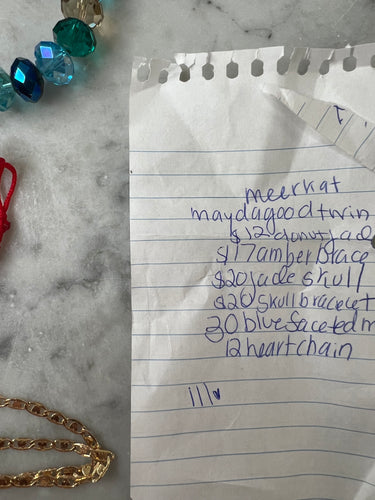 meerkat
maydagoodtwin
$12 donut jad
$17 amber brace
$20 jade skull
$20 skull bracelet
30 blue faceted m
12 heart chain